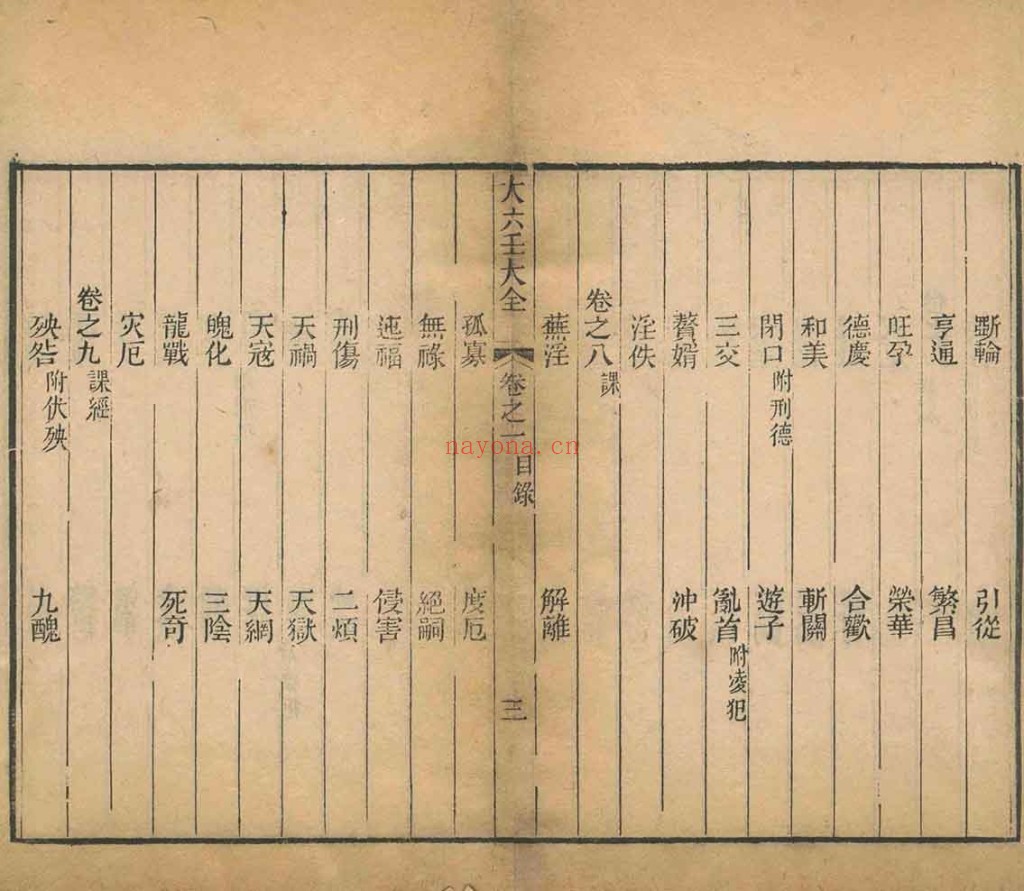 斲輪 引從
亨通 繁昌
旺孕 榮華
德慶 合歡
和美 斬關
閉口附刑德 遊子
三交 亂首附凌犯
贅婿 沖破
淫佚
卷之八課
蕪淫 解離
大六壬大全 卷之一目錄 三
孤寡 度厄
無祿 絕嗣
迍福 侵害
刑傷 二煩
天禍 天獄
天寇 天網
魄化 三陰
龍戰 死奇
灾厄
卷之九課經
殃咎附伏殃 九醜
nayona.cn